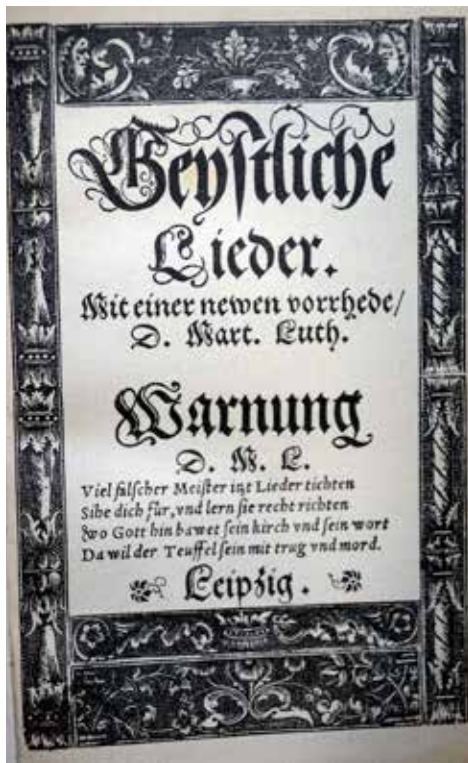 Geystliche
Lieder.
Mit einer newen vorrhede/
D. Mart. Luth.
Warnung
D. M. L.
Viel falscher Meister itzt Lieder tichten
Sihe dich für, vnd lern sie recht richten
Wo Gott hin bawet sein kirch vnd sein wort
Da wil der Teuffel sein mit trug vnd mord.
Leipzig.